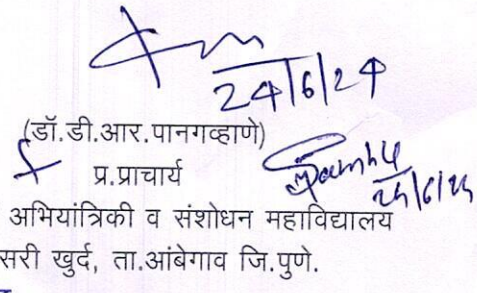 24/6/24
(डॉ.डी.आर.पानगव्हाणे)
प्र.प्राचार्य
अभियांत्रिकी व संशोधन महाविद्यालय
सरी खुर्द, ता.आंबेगाव जि.पुणे.